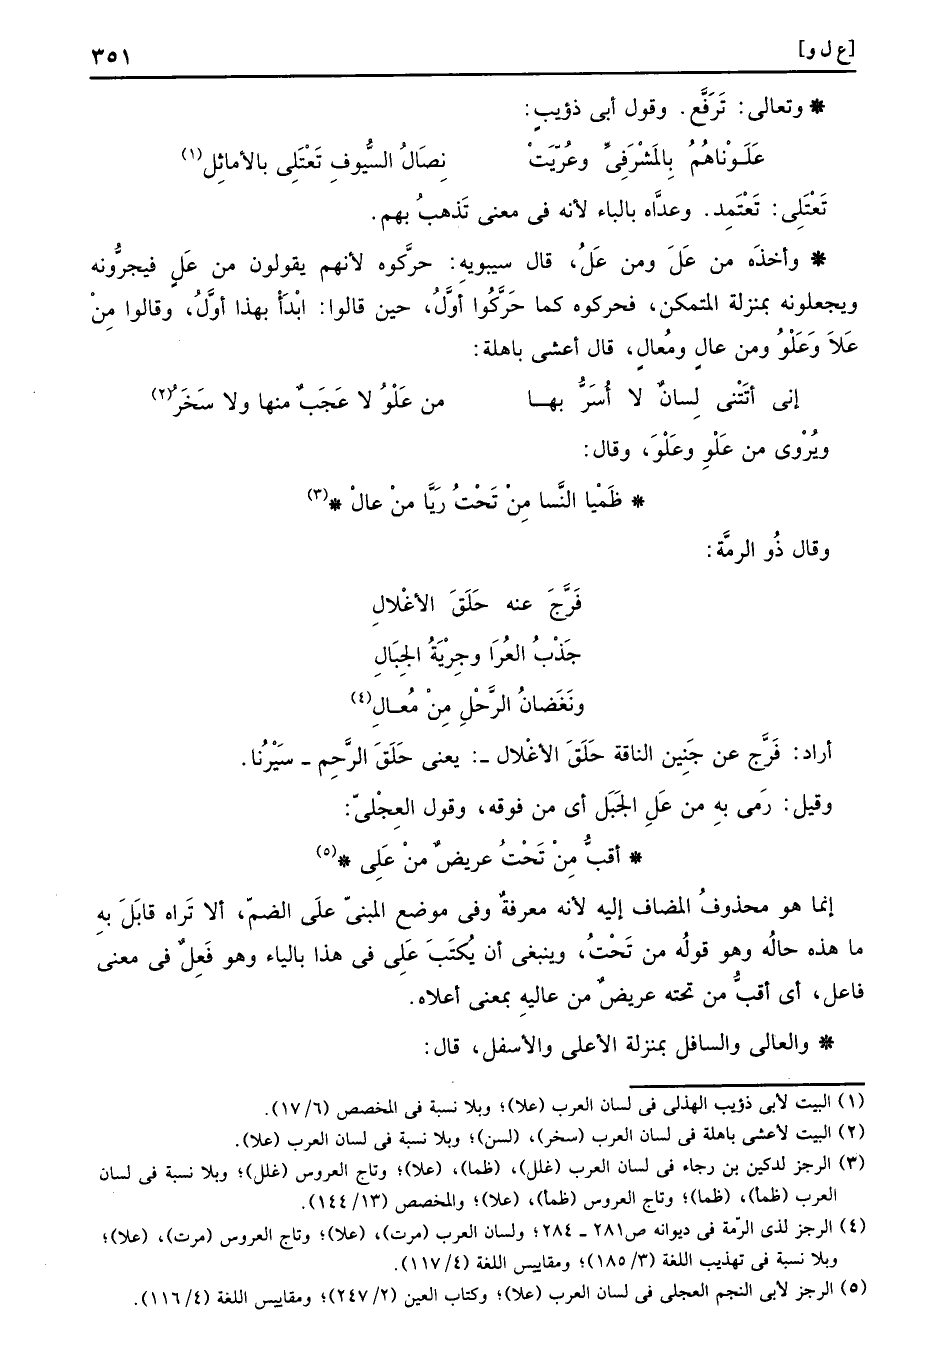 [ع ل و] ٣٥١
* وتعالى: تَرَفَّع. وقول أبى ذؤيبٍ:
عَلَــوْناهُمُ بِالمَشْرَفِىِّ وعُرِّيَتْ نِصَالُ السُّيوفِ تَعْتَلِى بالأماثِلِ(١)
تَعْتَلِى: تَعْتَمِد. وعدَّاه بالباء لأنه فى معنى تَذهبُ بهم.
* وأخذَه من عَلَ ومن عَلُ، قال سيبويه: حرَّكوه لأنهم يقولون من عَلٍ فيجرُّونه
ويجعلونه بمنزلة المتمكن، فحركوه كما حَرَّكُوا أوَّلُ، حين قالوا: ابْدَأْ بهذا أوَّلُ، وقالوا مِنْ
عَلاَ وَعَلْوُ ومن عالٍ ومُعالٍ، قال أعشى باهلة:
إنى أتَتْنى لِسانٌ لا أُسَرُّ بهــا من عَلْوُ لا عَجَبٌ منها ولا سَخَرُ(٢)
ويُرْوى من عَلْوِ وعَلْوَ، وقال:
* ظَمْيا النَّسا مِنْ تَحْتُ رَيَّا منْ عالْ *(٣)
وقال ذُو الرمَّة:
فَرَّجَ عنه حَلَقَ الأغْلالِ
جَذْبُ العُرَا وجِرْيَةُ الجِبَالِ
ونَغَضانُ الرَّحْلِ مِنْ مُعــالِ(٤)
أراد: فَرَّج عن جَنِين الناقة حَلَقَ الأغْلال ـ: يعنى حَلَقَ الرَّحِم ـ سَيْرُنا.
وقيل: رَمى به من عَلِ الجَبَل أى من فوقه، وقول العِجْلىّ:
* أقبُّ مِنْ تَحْتُ عريضٌ منْ عَلِى *(٥)
إنما هو محذوفُ المضاف إليه لأنه معرفةٌ وفى موضع المبنىّ علَى الضمّ، ألا تَراه قابَلَ به
ما هذه حالُه وهو قولُه من تَحْتُ، وينبغى أن يُكتَبَ عَلِى فى هذا بالياء وهو فَعِلٌ فى معنى
فاعل، أى أقبُّ من تحته عريضٌ من عاليهِ بمعنى أعلاه.
* والعالى والسافل بمنزلة الأعلى والأسفل، قال:
(١) البيت لأبى ذؤيب الهذلى فى لسان العرب (علا)؛ وبلا نسبة فى المخصص (١٧/٦).
(٢) البيت لأعشى باهلة فى لسان العرب (سخر)، (لسن)؛ وبلا نسبة فى لسان العرب (علا).
(٣) الرجز لدكين بن رجاء فى لسان العرب (غلل)، (ظما)، (علا)؛ وتاج العروس (غلل)؛ وبلا نسبة فى لسان
العرب (ظمأ)، (ظما)؛ وتاج العروس (ظمأ)، (علا)؛ والمخصص (١٤٤/١٣).
(٤) الرجز لذى الرّمة فى ديوانه ص٢٨١ ـ ٢٨٤؛ ولسان العرب (مرت)، (علا)؛ وتاج العروس (مرت)، (علا)؛
وبلا نسبة فى تهذيب اللغة (١٨٥/٣)؛ ومقاييس اللغة (١١٧/٤).
(٥) الرجز لأبى النجم العجلى فى لسان العرب (علا)؛ وكتاب العين (٢٤٧/٢)؛ ومقاييس اللغة (١١٦/٤).